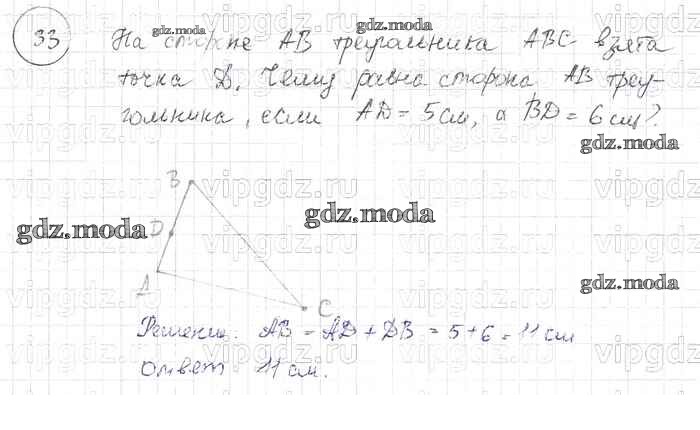 33
На стороне АВ треугольника АВС взята
точка D. Чему равна сторона АВ треу-
гольника, если AD = 5 см, а BD = 6 см?
B
D
A
C
Решение. AB = AD + DB = 5 + 6 = 11 см
Ответ 11 см.
gdz.moda
gdz.moda
gdz.moda
gdz.moda
gdz.moda
gdz.moda
vipgdz.ru